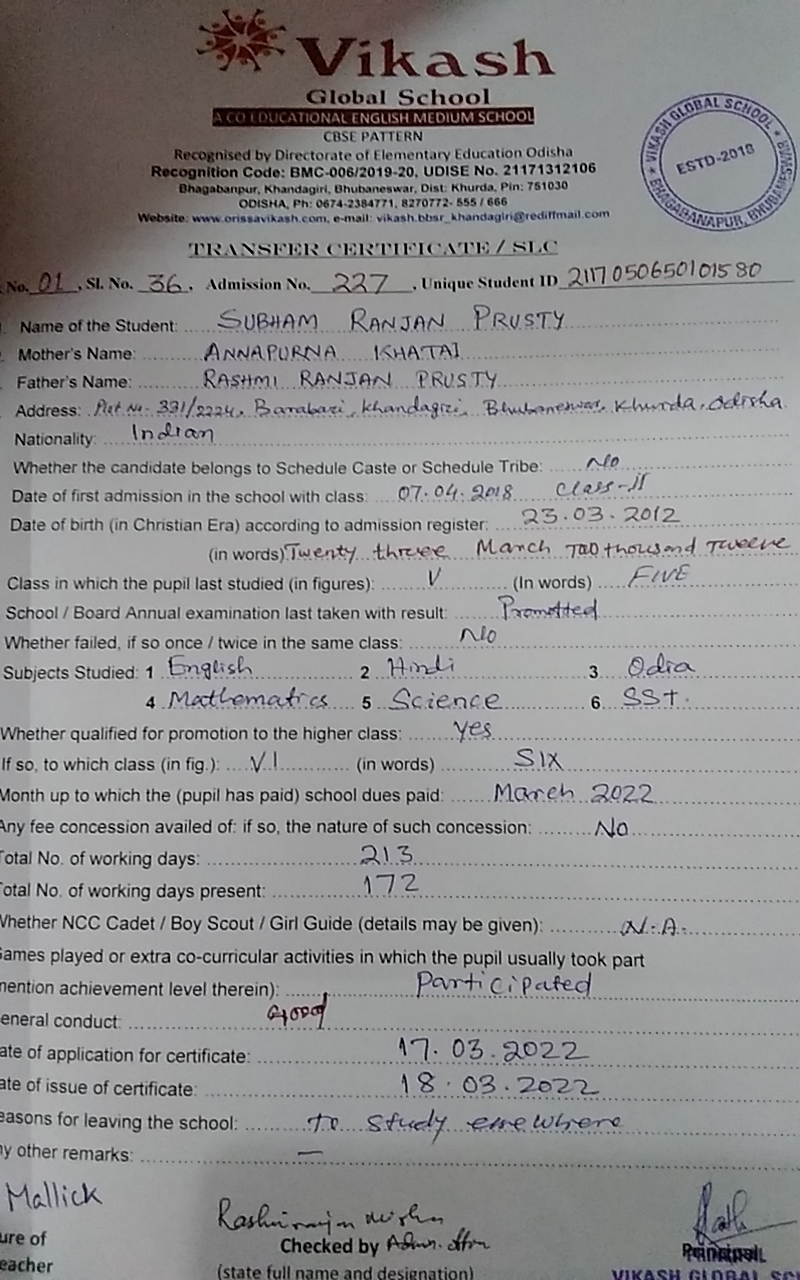 Vikash
Global School
A CO EDUCATIONAL ENGLISH MEDIUM SCHOOL
CBSE PATTERN
Recognised by Directorate of Elementary Education Odisha
Recognition Code: BMC-006/2019-20, UDISE No. 21171312106
Bhagabanpur, Khandagiri, Bhubaneswar, Dist: Khurda, Pin: 751030
ODISHA, Ph: 0674-2384771, 8270772- 555 / 666
Website: www.orissavikash.com, e-mail: vikash.bbsr_khandagiri@rediffmail.com
VIKASH GLOBAL SCHOOL
ESTD-2018
BHAGABANAPUR, BHUBANES
TRANSFER CERTIFICATE / SLC
No. 01, Sl. No. 36, Admission No. 227, Unique Student ID 2117050650101580
Name of the Student: SUBHAM RANJAN PRUSTY
Mother's Name: ANNAPURNA KHATAI
Father's Name: RASHMI RANJAN PRUSTY
Address: Plot No- 331/2224, Barabari, Khandagiri, Bhubaneswar, Khurda, Odisha
Nationality: Indian
Whether the candidate belongs to Schedule Caste or Schedule Tribe: No
Date of first admission in the school with class: 07.04.2018 Class-II
Date of birth (in Christian Era) according to admission register: 23.03.2012
(in words) Twenty three March Two thousand Twelve
Class in which the pupil last studied (in figures): V (In words) FIVE
School / Board Annual examination last taken with result: Promotted
Whether failed, if so once / twice in the same class: No
Subjects Studied: 1 English 2 Hindi 3 Odia
4 Mathematics 5 Science 6 SST.
Whether qualified for promotion to the higher class: Yes
If so, to which class (in fig.): VI (in words) SIX
Month up to which the (pupil has paid) school dues paid: March 2022
Any fee concession availed of: if so, the nature of such concession: No
Total No. of working days: 213
Total No. of working days present: 172
Whether NCC Cadet / Boy Scout / Girl Guide (details may be given): N.A.
Games played or extra co-curricular activities in which the pupil usually took part
mention achievement level therein): Participated
eneral conduct: Good
ate of application for certificate: 17.03.2022
ate of issue of certificate: 18.03.2022
easons for leaving the school: to study elsewhere
ny other remarks: —
Mallick
ure of
eacher
Checked by Admn.
(state full name and designation)
Principal
VIKASH GLOBAL SC